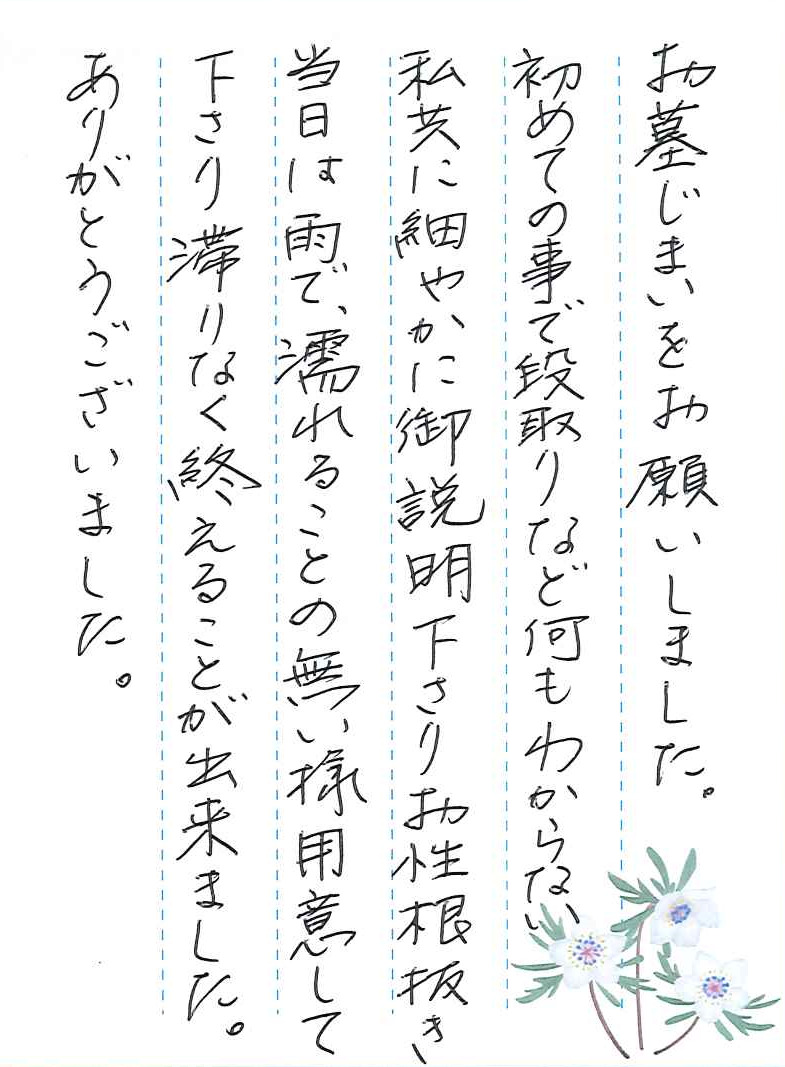 お墓じまいをお願いしました。
初めての事で段取りなど何もわからない
私共に細やかに御説明下さりお性根抜き
当日は雨で、濡れることの無い様用意して
下さり滞りなく終えることが出来ました。
ありがとうございました。